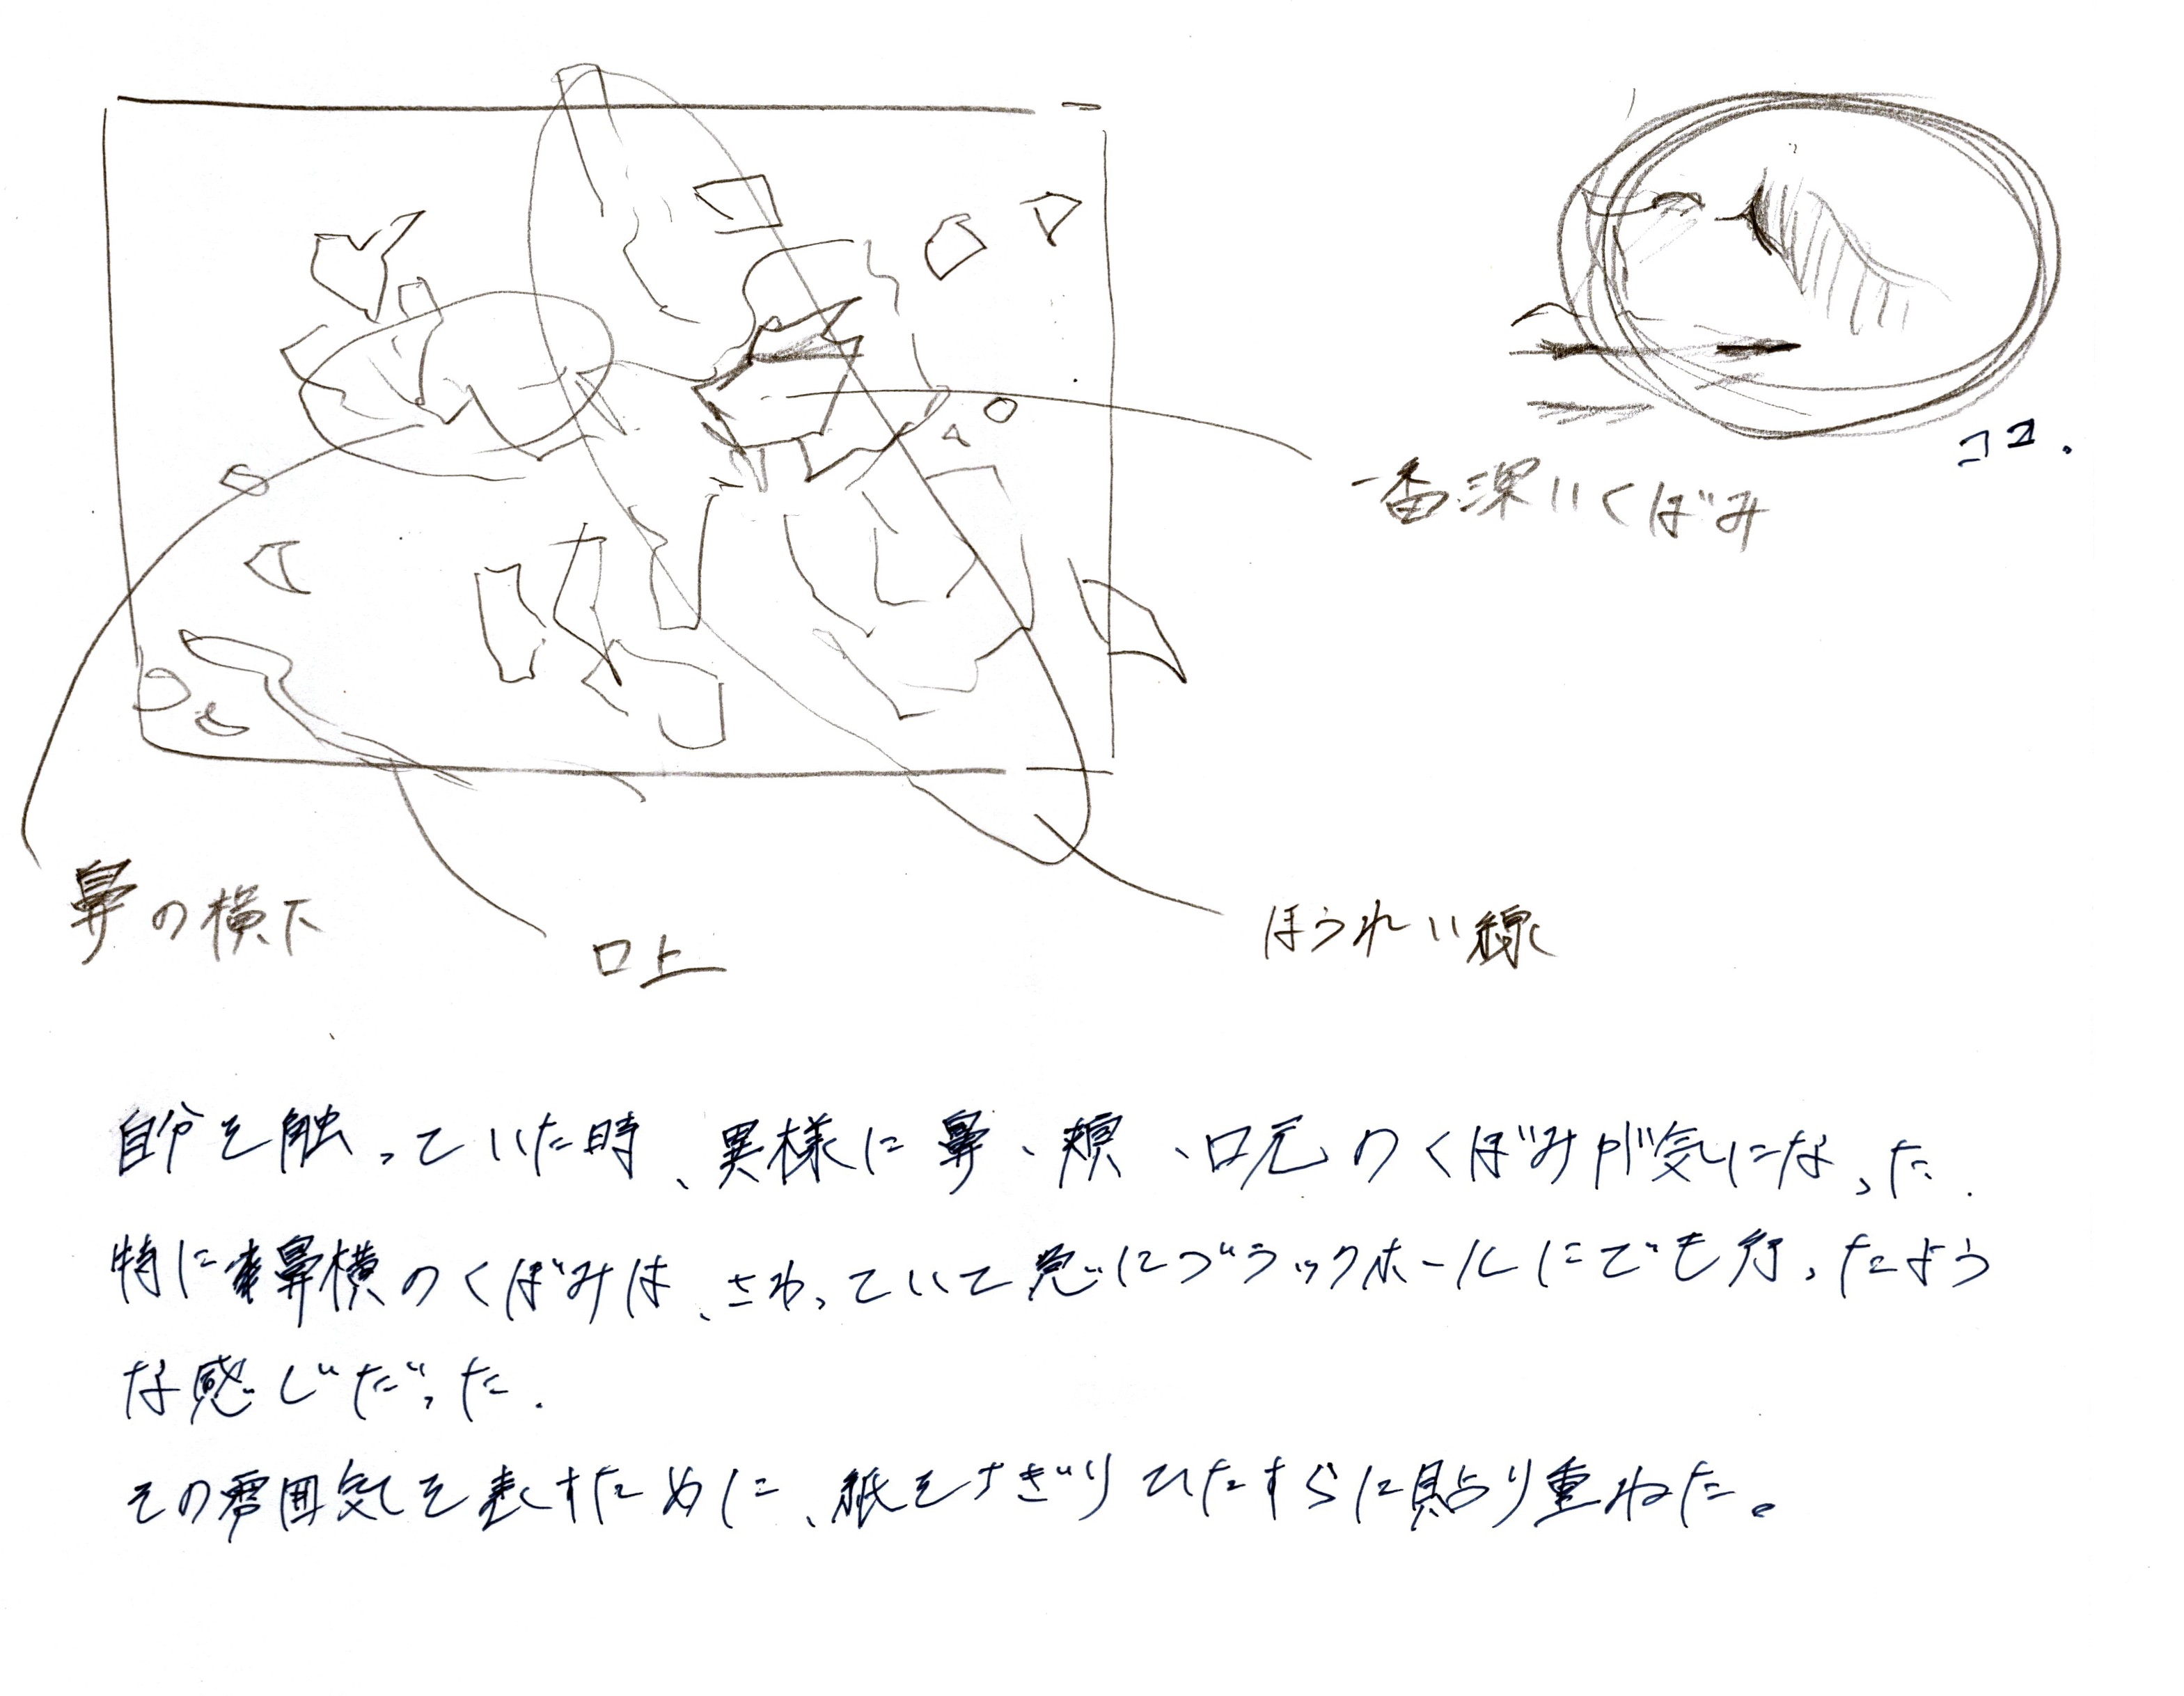 ココ.
一番深いくぼみ
鼻の横下
口上
ほうれい線
自分を触っていた時、異様に鼻、頬、口元のくぼみが気になった.
特に鼻横のくぼみは、さわっていて急にブラックホールにでも行ったよう
な感じだった.
その雰囲気を表すために、紙をちぎりひたすらに貼り重ねた。